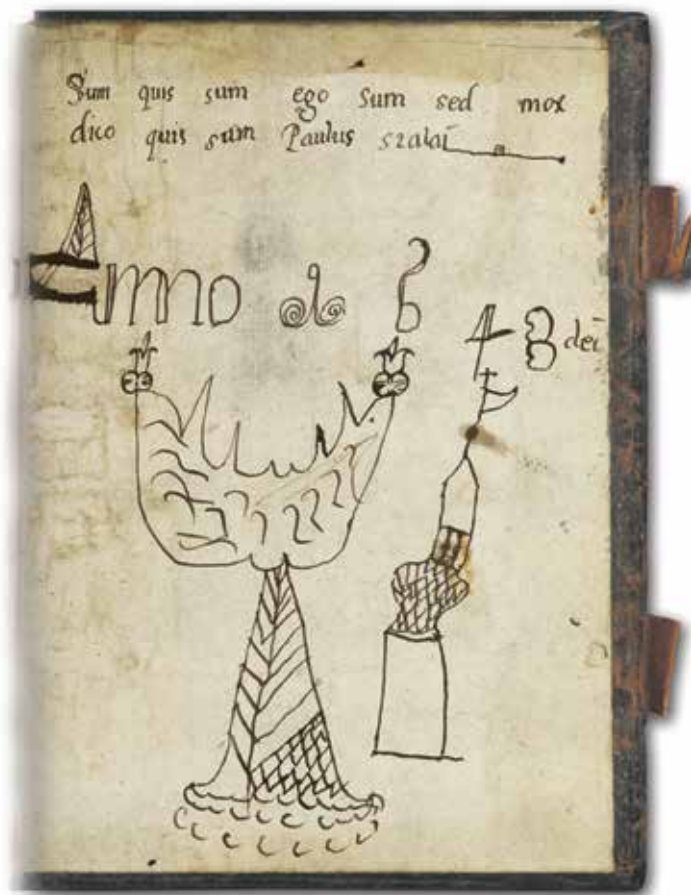 Sum quis sum ego sum sed mox
dico quis sum Paulus szalaĩ
Anno do
43 deĩ